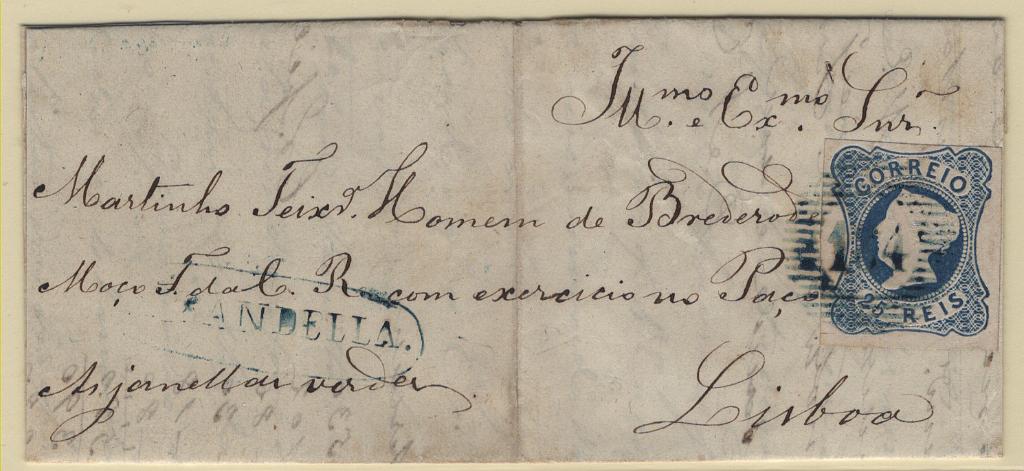 Ill.mo e Ex.mo Snr.
Martinho Teix.ra Homem de Brederode
Moço F. da C. R. com exercicio no Paço
As janellas verdes
Lisboa
ANDELLA.
CORREIO
14
25 REIS